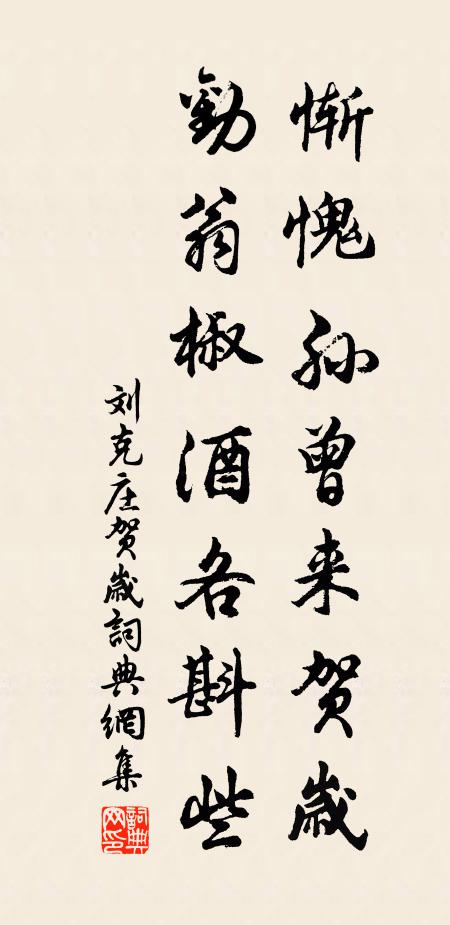 惭愧孙曾来贺岁
劝翁椒酒各斟些
刘克庄贺岁詞典網集
詞典网印